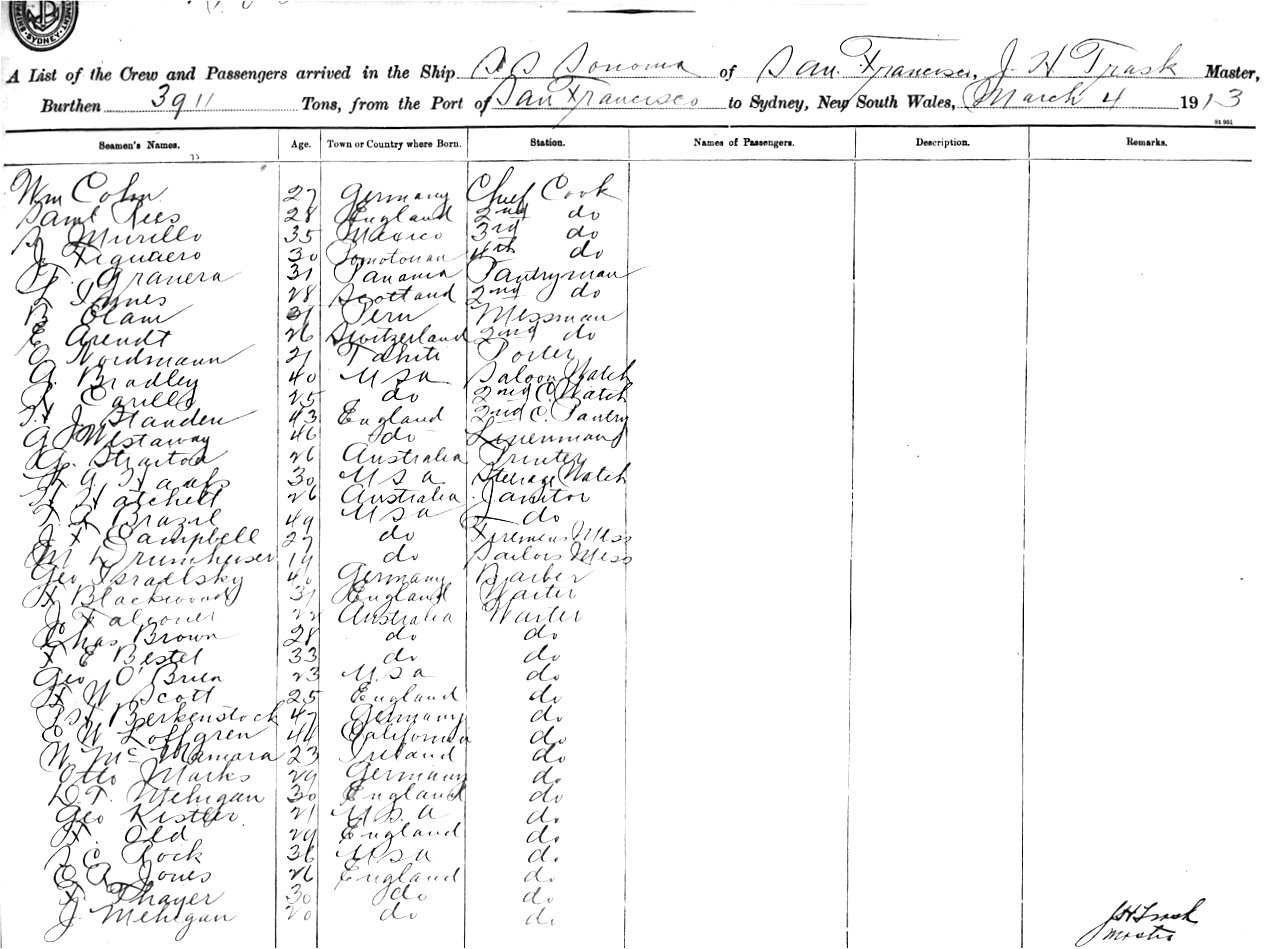 SYDNEY
A List of the Crew and Passengers arrived in the Ship S S Sonoma of San Francisco, J. H Trask Master,
Burthen 3911 Tons, from the Port of San Francisco to Sydney, New South Wales, March 4 1913
St 951
Seamen's Names. Age. Town or Country where Born. Station. Names of Passengers. Description. Remarks.
Wm Cohn 27 Germany Chief Cook
Saml Rees 28 England 2nd do
Murillo 35 Mexico 3rd do
J Figuaero 30 4th do
F. Granera 31 Panama Pantryman
L Innes 28 Scotland 2nd do
B Olam 31 Peru Messman
E Arendt 26 Switzerland 2nd do
O Nordmann 21 Tahiti Porter
A. Bradley 40 U S A Saloon Watch
R Carillo 25 do 2nd C. Watch
H J Standen 43 England 2nd C. Pantry
A J Westaway 46 do Linenman
A. Stratton 26 Australia Printer
30 U S A Steerage Watch
H Hatchell 26 Australia Janitor
Brazil 49 U S A do
J F Campbell 27 do Firemens Mess
M Drumheiser 19 do Sailors Mess
Geo Israelsky 40 Germany Barber
H Blackwood 31 England Waiter
J Falconer 22 Australia Waiter
Chas Brown 28 do do
F E Bestel 33 do do
Geo O'Brien 23 U.S.A do
H W Scott 25 England do
Berkenstock 47 Germany do
E W Loffgren 44 California do
W McNamara 23 Ireland do
Otto Marks 29 Germany do
D. F. Mehigan 30 England do
Geo Kistler 21 U.S.A do
H. Old 29 England do
S C Rock 36 U S A do
E A Jones 26 England do
F Thayer 30 do do
J. Mehigan 20 do do
J H Trask
Master